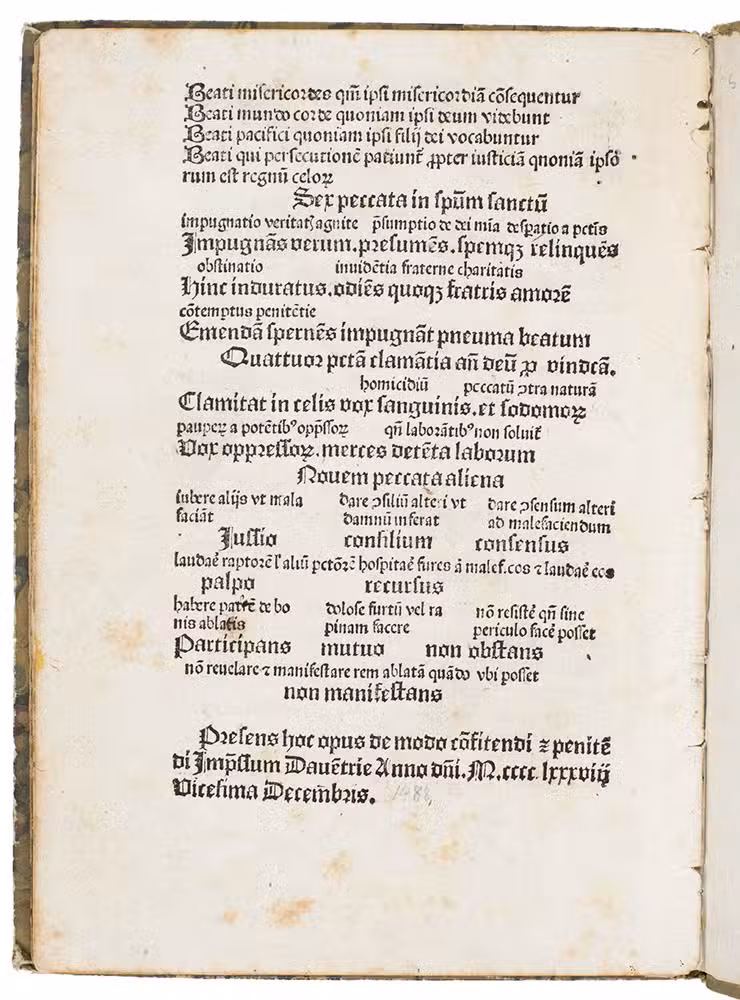 Beati misericordes qm̄ ipsi misericordiā cōsequentur
Beati mundo corde quoniam ipsi deum videbunt
Beati pacifici quoniam ipsi filij dei vocabuntur
Beati qui persecutionē patiunt̄ ꝓpter iusticiā qnoniā ipso
rum est regnū celoꝝ
Sex peccata in spūm sanctū
impugnatio veritatꝭ agnite p̄sumptio de dei mīa despatio a pctīs
Impugnās verum. presumēs. spemqꝫ relinquēs
obstinatio inuidentia fraterne charitatis
Hinc induratus. odiēs quoqꝫ fratris amorē
cōtemptus penitētie
Emendā spernēs impugnāt pneuma beatum
Quattuor pctā clamātia añ deū ꝓ vindcā.
homicidiū peccatū ꝯtra naturā
Clamitat in celis vox sanguinis. et sodomoꝝ
paupeꝝ a potētibꝰ opp̄ssoꝝ qñ laborātibꝰ non soluit̄
Vox oppressoꝝ. merces detēta laborum
Nouem peccata aliena
iubere alijs vt mala dare ꝯsiliū alteri vt dare ꝯsensum alteri
faciāt damnū inferat ad malefaciendum
Iussio consilium consensus
laudaē raptorē l' aliū pctōrē hospitaē fures ⁊ malef.cos ⁊ laudaē eos
palpo recursus
habere partē de bo dolose furtū vel ra nō resistē qñ sine
nis ablatis pinam facere periculo facē posset
Participans mutuo non obstans
nō reuelare ⁊ manifestare rem ablatā quādo vbi posset
non manifestans
Presens hoc opus de modo cōfitendi ⁊ penitē
di Imp̄ssum Dauētrie Anno dñi. M. cccc. lxxxviij
Vicesima Decembris. 1488